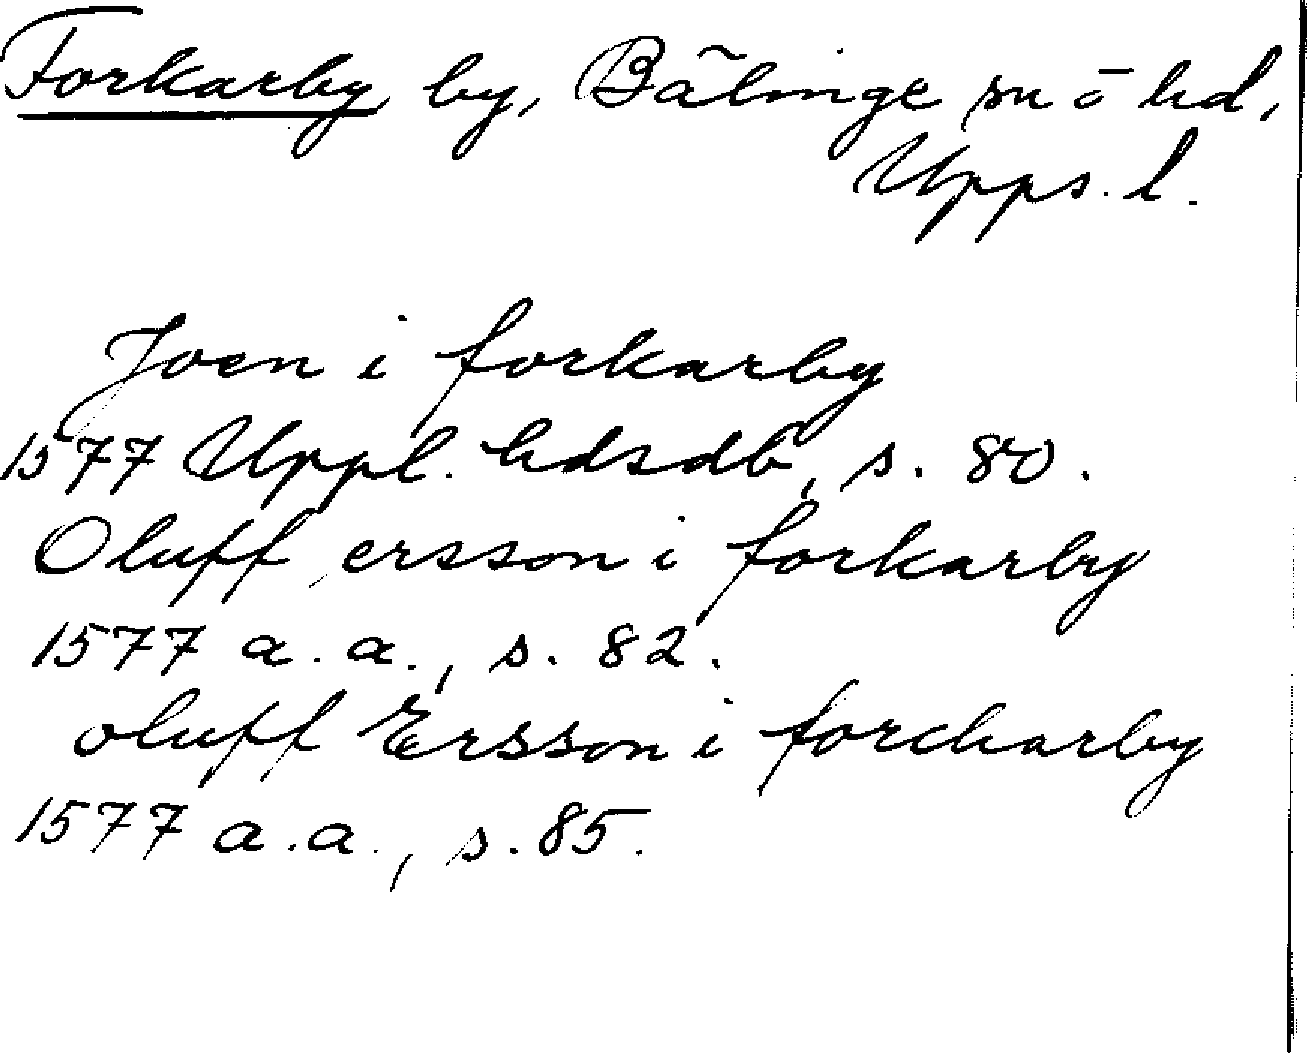 Forkarby by, Bälinge sn o hd,
Upps. l.
Joen i forkarby
1577 Uppl. hdsdb, s. 80.
Oluff ersson i forkarby
1577 a. a., s. 82.
oluff Ersson i forcharby
1577 a. a., s. 85.